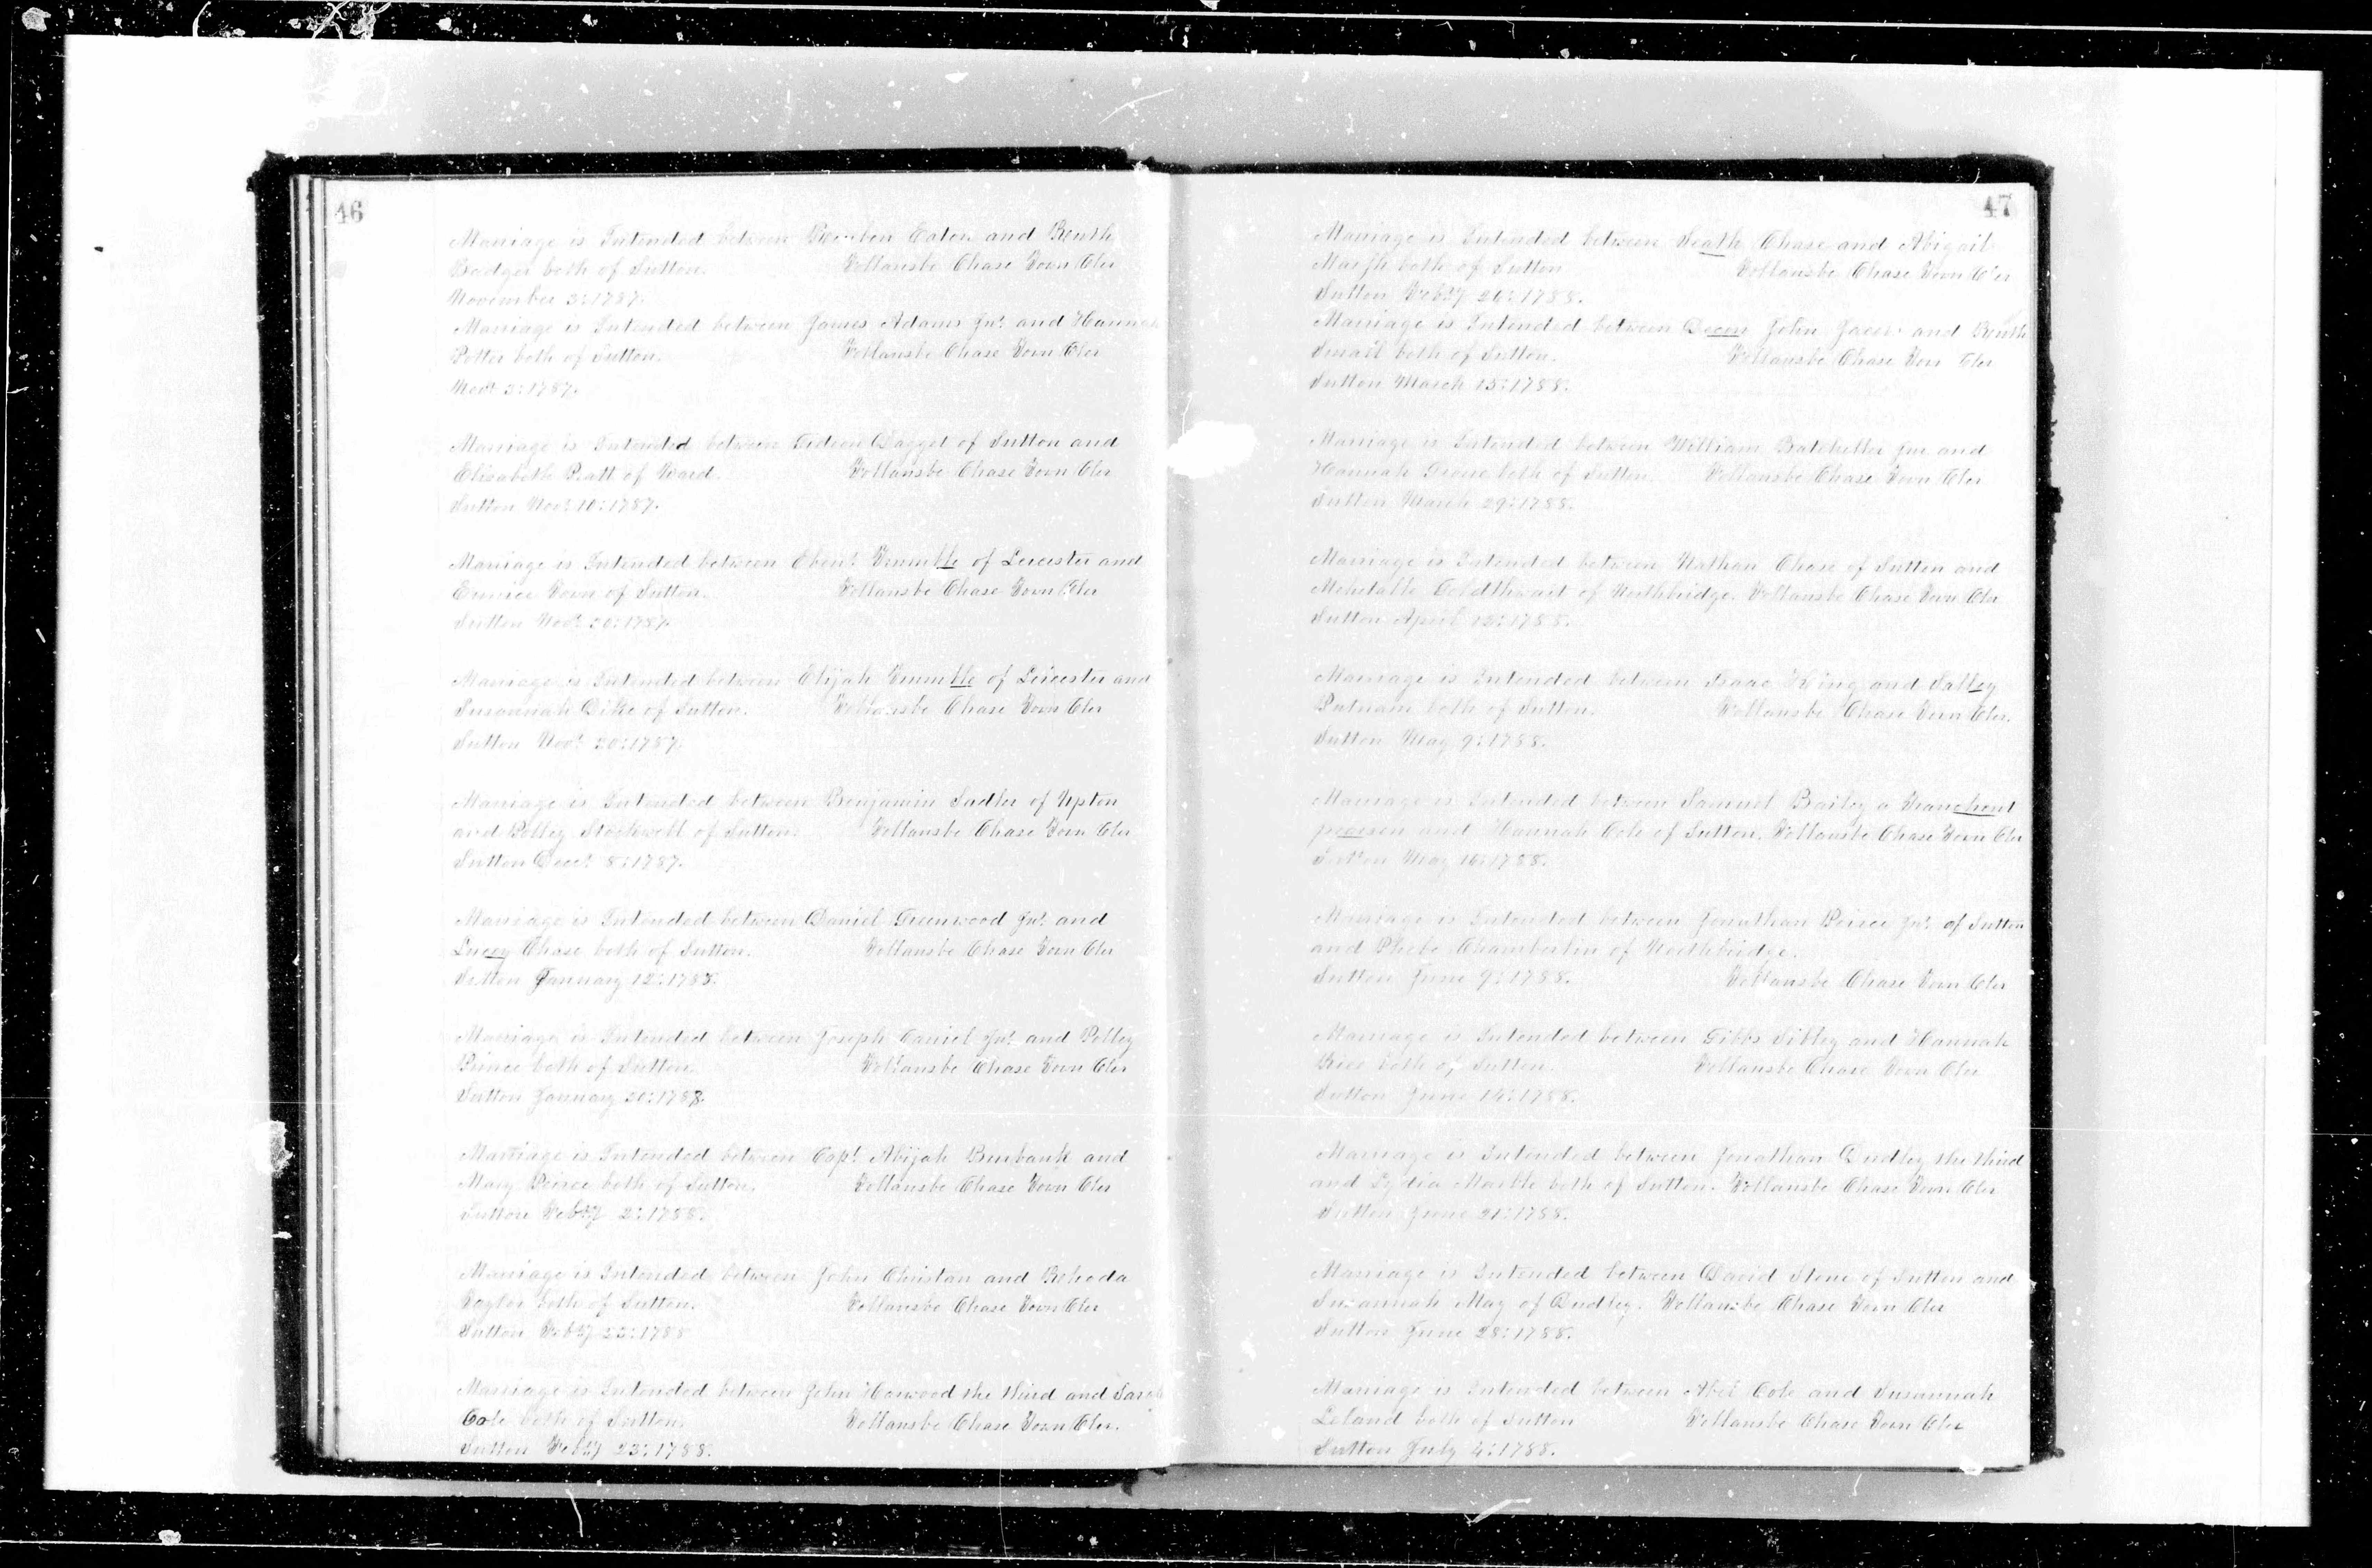 46
Marriage is Intended between Reuben Eaton and Reuth
Badger both of Sutton. Follansbe Chase Town Cler
November 3: 1787.
Marriage is Intended between James Adams Jur. and Hannah
Potter both of Sutton. Follansbe Chase Town Cler
Novr. 3: 1787.
Marriage is Intended between Gideon Dagget of Sutton and
Elisabeth Pratt of Ward. Follansbe Chase Town Cler
Sutton Novr. 10: 1787.
Marriage is Intended between Ebenr. Trumble of Leicester and
Eunice Town of Sutton. Follansbe Chase Town Cler
Sutton Novr. 20: 1787.
Marriage is Intended between Elijah Trumble of Leicester and
Susannah Dike of Sutton. Follansbe Chase Town Cler
Sutton Novr. 20: 1787.
Marriage is Intended between Benjamin Sadler of Upton
and Polley Stockwell of Sutton. Follansbe Chase Town Cler
Sutton Decr. 8: 1787.
Marriage is Intended between Daniel Greenwood Jur. and
Lucey Chase both of Sutton. Follansbe Chase Town Cler
Sutton January 12: 1788.
Marriage is Intended between Joseph Carriel Jur. and Polley
Prince both of Sutton. Follansbe Chase Town Cler
Sutton January 20: 1788.
Marriage is Intended between Capt. Abijah Burbank and
Mary Peirce both of Sutton. Follansbe Chase Town Cler
Sutton Febry 2: 1788.
Marriage is Intended between John Christan and Rehoda
Taylor both of Sutton. Follansbe Chase Town Cler
Sutton Febry 22: 1788
Marriage is Intended between John Harwood the third and Sarah
Cole both of Sutton. Follansbe Chase Town Cler.
Sutton Febry 23: 1788.
47
Marriage is Intended between Heath Chase and Abigail
Marsh both of Sutton Follansbe Chase Town Cler
Sutton Febry 26: 1788.
Marriage is Intended between Decon John Jacobs and Reuth
Small both of Sutton. Follansbe Chase Town Cler
Sutton March 15: 1788.
Marriage is Intended between William Batcheller Jur and
Hannah Grove both of Sutton. Follansbe Chase Town Cler
Sutton March 29: 1788.
Marriage is Intended between Nathan Chase of Sutton and
Mehetable Goldthwait of Northbridge. Follansbe Chase Town Cler
Sutton April 12: 1788.
Marriage is Intended between Isaac King and Salley
Putnam both of Sutton. Follansbe Chase Town Cler.
Sutton May 9: 1788.
Marriage is Intended between Samuel Bailey a Tranchent
pearson and Hannah Cole of Sutton. Follansbe Chase Town Cler
Sutton May 16: 1788.
Marriage is Intended between Jonathan Peirce Jur. of Sutton
and Phebe Chamberlin of Northbridge.
Sutton June 9: 1788. Follansbe Chase Town Cler
Marriage is Intended between Gibbs Sibley and Hannah
Rice both of Sutton. Follansbe Chase Town Cler
Sutton June 14: 1788.
Marriage is Intended between Jonathan Dudley the third
and Lydia Marble both of Sutton. Follansbe Chase Town Cler
Sutton June 21: 1788.
Marriage is Intended between David Stone of Sutton and
Susannah May of Dudley. Follansbe Chase Town Cler
Sutton June 28: 1788.
Marriage is Intended between Abel Cole and Susannah
Leland both of Sutton Follansbe Chase Town Cler
Sutton July 4: 1788.